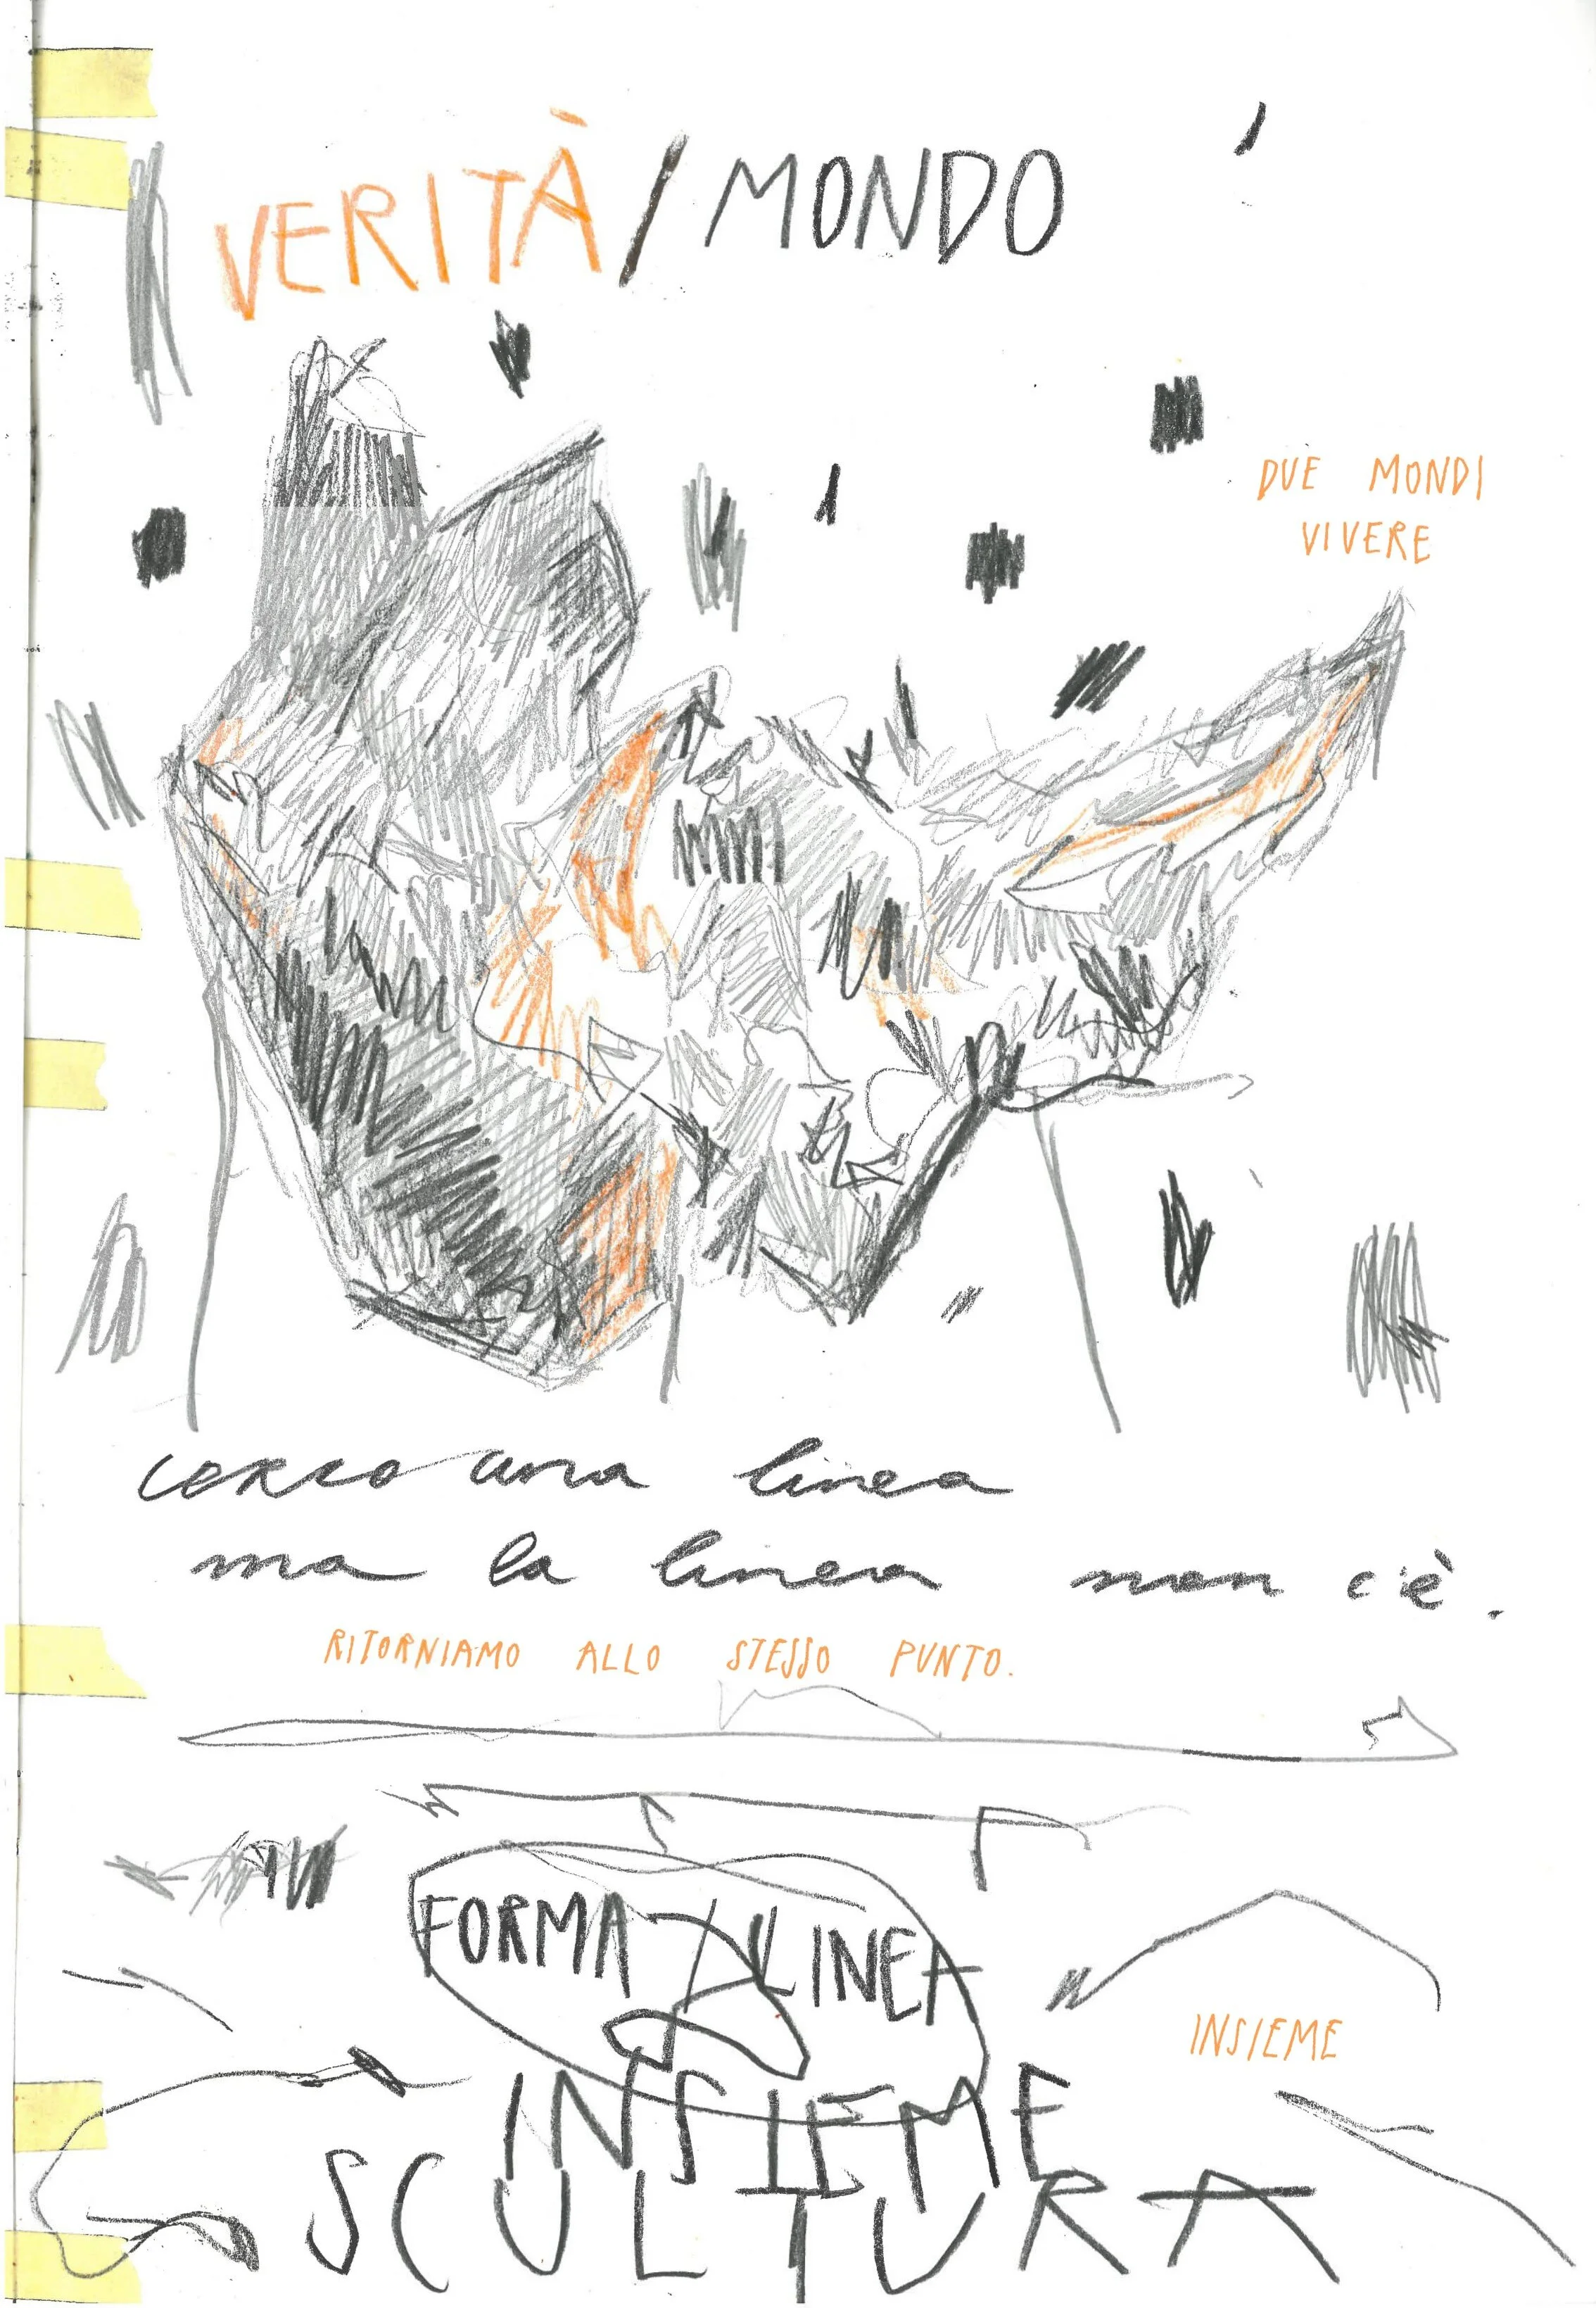 VERITÀ / MONDO
DUE MONDI
VIVERE
cerco una linea
ma la linea non c'è.
RITORNIAMO ALLO STESSO PUNTO.
FORMA / LINEA
INSIEME
INSIEME
SCULTURA